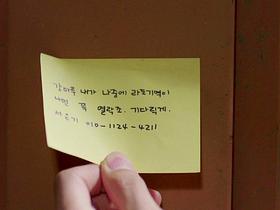 강마루 내가 나중에 라도 기억이
나면 꼭 연락죠. 기다릭게.
서은기 010-1124-4211